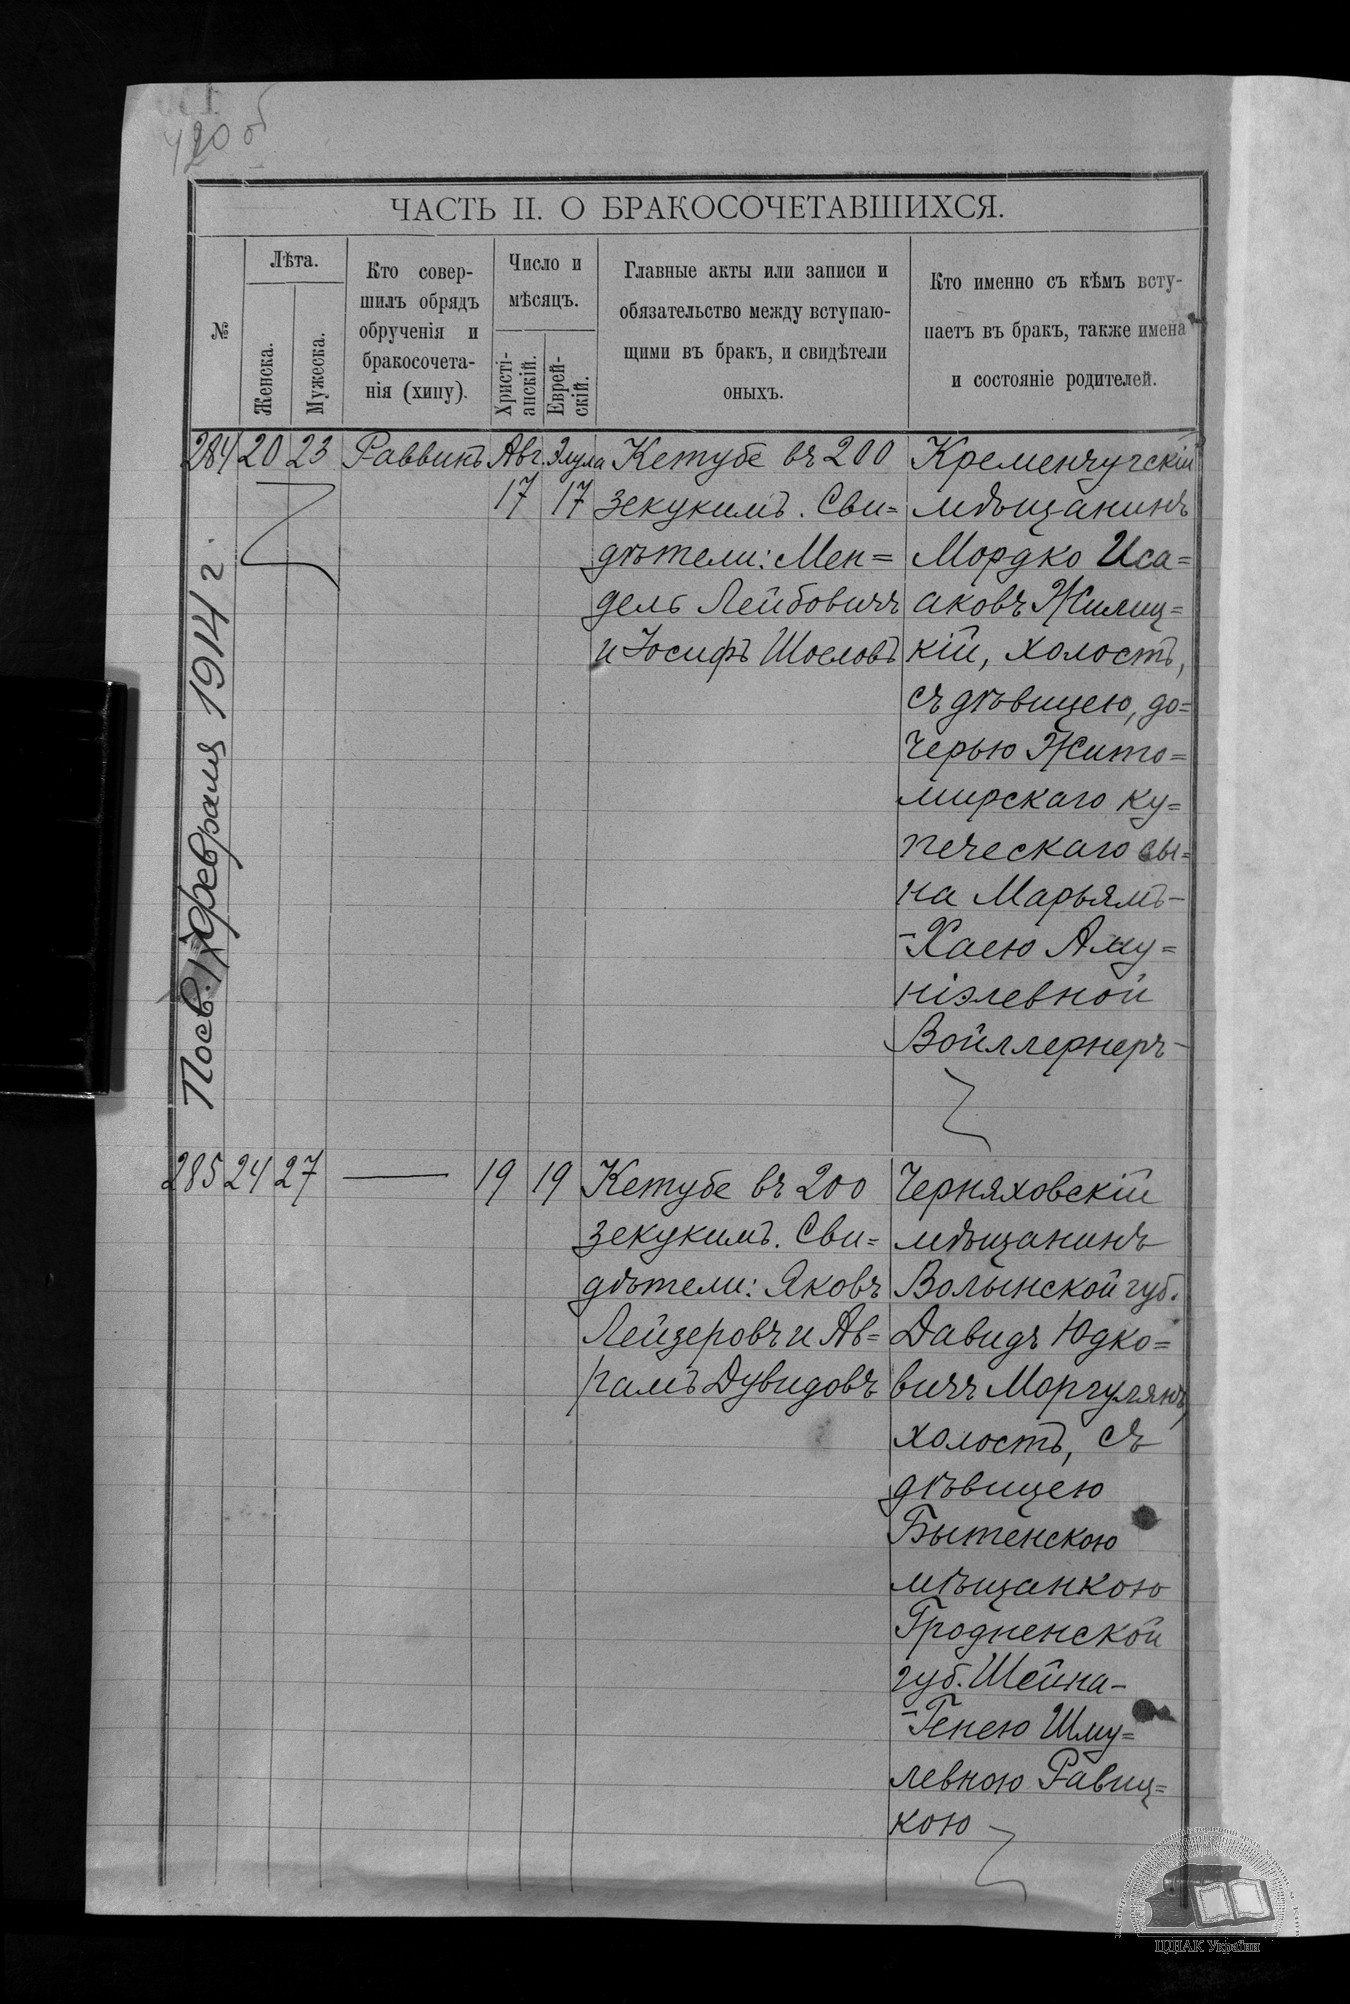 420 об
ЧАСТЬ II. О БРАКОСОЧЕТАВШИХСЯ.
№
Лѣта.
Женска.
Мужеска.
Кто совер-
шилъ обрядъ
обрученія и
бракосочета-
нія (хипу).
Число и
мѣсяцъ.
Христі-
анскій.
Еврей-
скій.
Главные акты или записи и
обязательство между вступаю-
щими въ бракъ, и свидѣтели
оныхъ.
Кто именно съ кѣмъ всту-
паетъ въ бракъ, также имена
и состояніе родителей.
284 20 23 Раввинъ Авг. 17 Элула 17
Кетубе въ 200
зекукимъ. Сви=
дѣтели: Мен=
дель Лейбовичъ
и Іосифъ Шоеловъ
Кременчугскій
мѣщанинъ
Мордко Иса=
аковъ Жилиц=
кій, холостъ,
съ дѣвицею, до=
черью Жито=
мирскаго ку=
печескаго сы=
на Марьямъ-
-Хаею Аму=
ніэлевной
Войллернеръ
Посв. 17 февраля 1914 г.
285 24 27 — 19 19
Кетубе въ 200
зекукимъ. Сви=
дѣтели: Яковъ
Лейзеровъ и Ав=
рамъ Дувидовъ
Черняховскій
мѣщанинъ
Волынской губ.
Давидъ Юдко=
вичъ Моргулянъ,
холостъ, съ
дѣвицею
Бытенскою
мѣщанкою
Гродненской
губ. Шейна-
-Генею Шму=
левною Равиц=
кою
ЦДІАК України